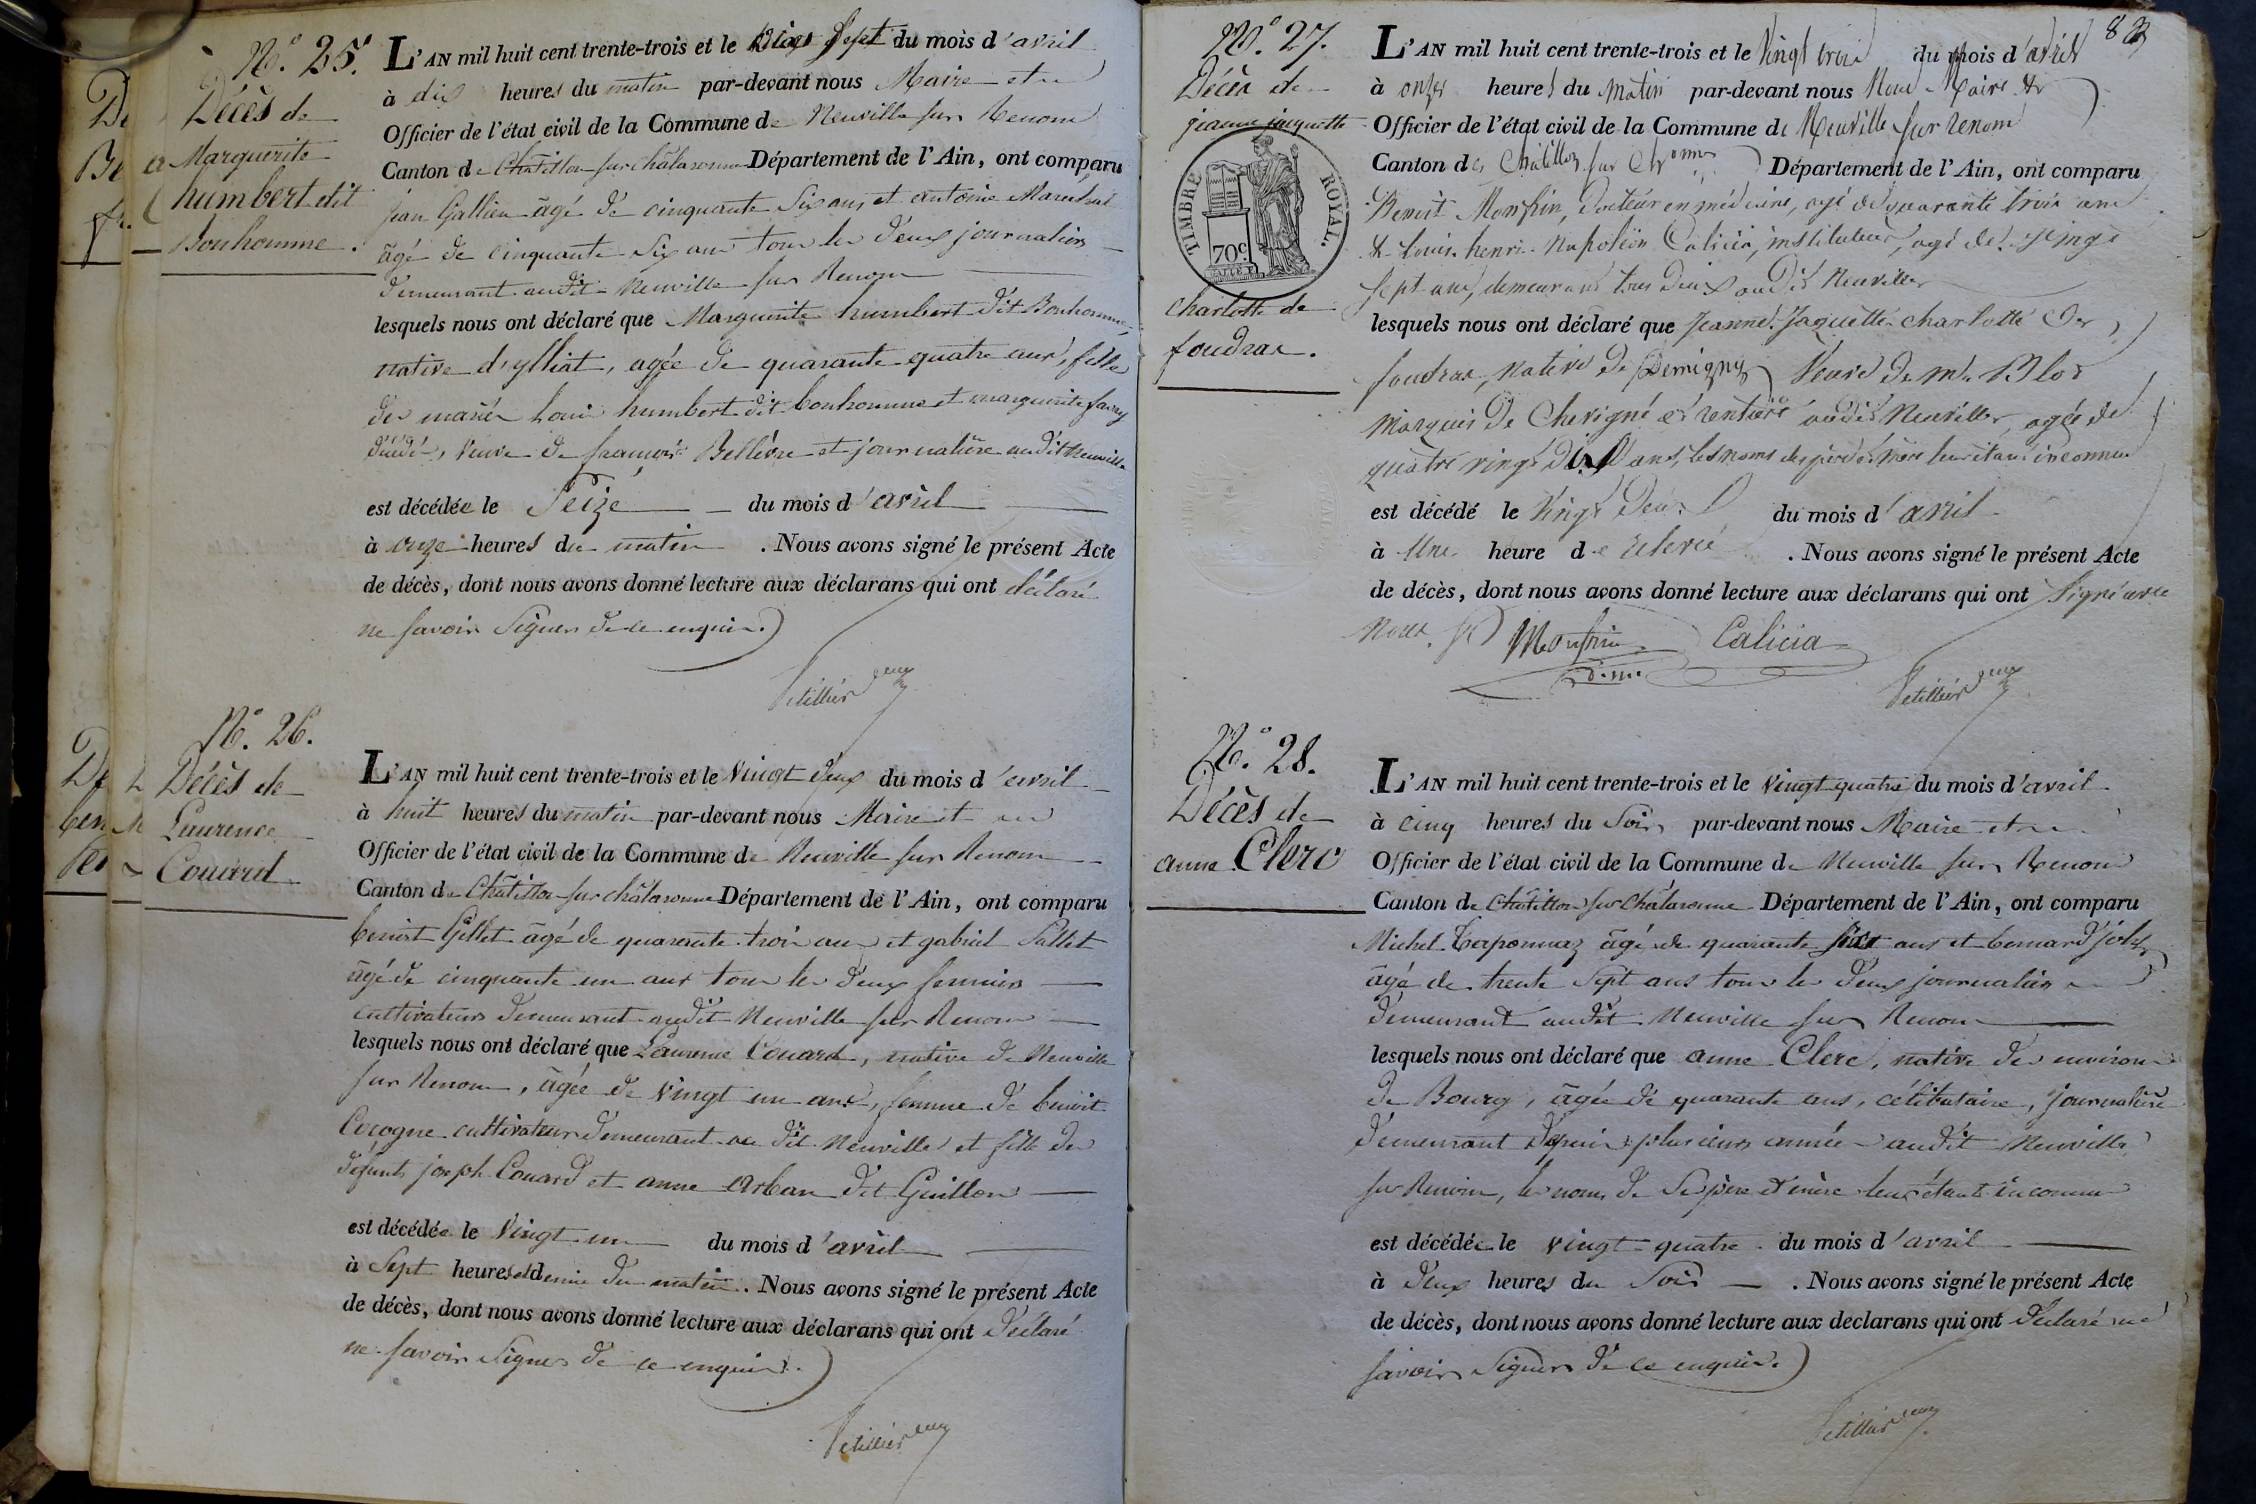 N.° 25.
Décès de
Marguerite
humbert dit
Bonhomme.
L'AN mil huit cent trente-trois et le dix Sept du mois d'avril
à dix heures du matin par-devant nous Maire et
Officier de l'état civil de la Commune de Neuville sur Renom
Canton de Châtillon sur châlaronne Département de l'Ain, ont comparu
jean Gallien âgé de cinquante Six ans et antoine Maréchal
âgé de cinquante Six ans tous les deux journaliers
demeurant audit Neuville sur Renom
lesquels nous ont déclaré que Marguerite humbert dit Bonhomme,
native d'ylliat, agée de quarante quatre ans, fille
des mariés Louis humbert dit bonhomme et marguerite
décédés, veuve de françois Bellèvre et journalière audit Neuville
est décédée le Seize du mois d'avril
à onze heures du matin. Nous avons signé le présent Acte
de décès, dont nous avons donné lecture aux déclarans qui ont déclaré
ne savoir Signer de ce enquis.
Petillier
N.° 26.
Décès de
Laurence
Couard
L'AN mil huit cent trente-trois et le vingt deux du mois d'avril
à huit heures du matin par-devant nous Maire et
Officier de l'état civil de la Commune de Neuville sur Renom
Canton de Châtillon sur châlaronne Département de l'Ain, ont comparu
benoit Gillet âgé de quarante trois ans et gabriel Pallet
âgé de cinquante un ans tous les deux fermiers
cultivateurs demeurant audit Neuville sur Renom
lesquels nous ont déclaré que Laurence Couard, native de Neuville
sur Renom, âgée de vingt un ans, femme de benoit
Cocogne cultivateur demeurant au dit Neuville et fille des
défunts joseph Couard et anne Arban dit Guillon
est décédée le Vingt un du mois d'avril
à Sept heures et demie du matin. Nous avons signé le présent Acte
de décès, dont nous avons donné lecture aux déclarans qui ont déclaré
ne savoir Signer de ce enquis.
Petillier
83
N.° 27.
Décès de
jeanne jacquette
TIMBRE ROYAL.
70c
charlotte de
foudras.
L'AN mil huit cent trente-trois et le Vingt trois du mois d'avril
à onze heures du matin par-devant nous Nous Maire &
Officier de l'état civil de la Commune de Neuville sur Renom
Canton de Châtillon sur Ch.onne Département de l'Ain, ont comparu
Benoit Monfrin, Docteur en médecine, agé de quarante trois ans
& Louis henri Napoléon Calicia, instituteur, agé de vingt
sept ans, demeurans tous Deux audit Neuville
lesquels nous ont déclaré que Jeanne Jaquette charlotte De
foudras, native de Demigny, Veuve de Mr. Blot
Marquis de Chevigné et rentière audit Neuville, agée de
quatre vingt ans, les noms des père & mère leur étant inconnus
est décédé le Vingt Deux du mois d'avril
à Une heure de relevée. Nous avons signé le présent Acte
de décès, dont nous avons donné lecture aux déclarans qui ont Signé avec
nous.
Monfrin Calicia
d.m.
Petillier
N.° 28.
Décès de
anne Clerc
L'AN mil huit cent trente-trois et le vingt quatre du mois d'avril
à cinq heures du Soir par-devant nous Maire et
Officier de l'état civil de la Commune de Neuville sur Renom
Canton de Châtillon sur châlaronne Département de l'Ain, ont comparu
Michel Taponnaz âgé de quarante Six ans et bernard joly
âgé de trente Sept ans tous les deux journaliers
demeurant audit Neuville sur Renom
lesquels nous ont déclaré que anne Clerc, native des environs
de Bourg, âgée de quarante ans, célibataire, journalière
demeurant depuis plusieurs année audit Neuville
sur Renom, les noms de Ses père et mère leur étant inconnus
est décédée le vingt quatre du mois d'avril
à deux heures du Soir. Nous avons signé le présent Acte
de décès, dont nous avons donné lecture aux déclarans qui ont déclaré ne
savoir Signer de ce enquis.
Petillier